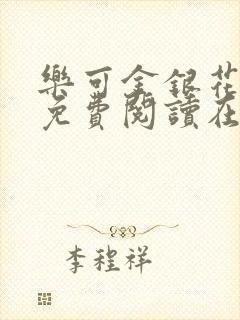 樂可金銀花
免費閱讀在
李程祥